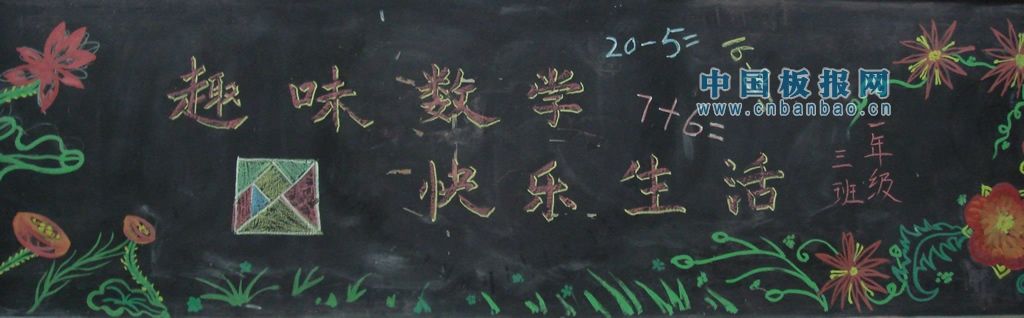 趣味数学
快乐生活
20-5=
7+6=
一年级
三班
中国板报网
www.cnbanbao.cn